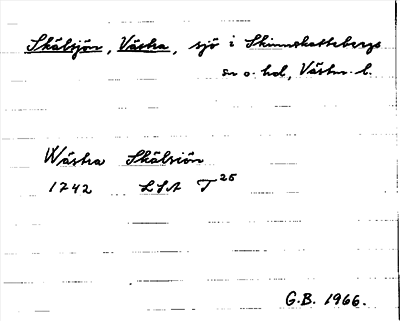 Skälsjön, Västra, sjö i Skinnskattebergs
sn o. hd, Västm. l.
Wästra Skälsiön
1742 LSA T 25
G.B. 1966.